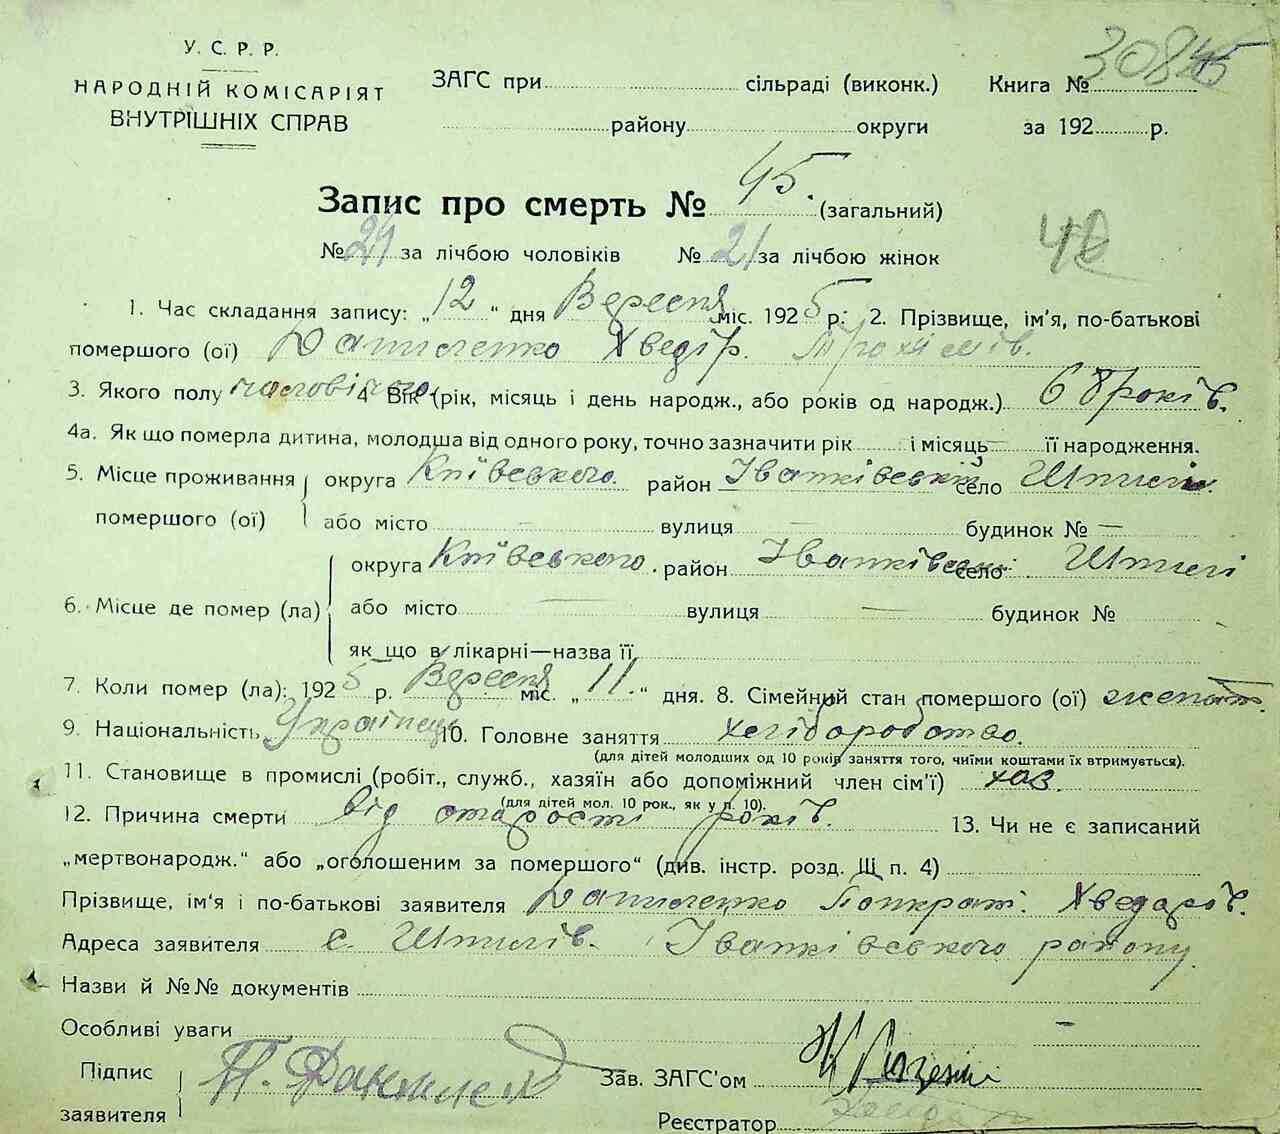 У. С. Р. Р.
НАРОДНІЙ КОМІСАРІЯТ
ВНУТРІШНІХ СПРАВ
ЗАГС при сільраді (виконк.) Книга № 308
району округи за 192 р.
Запис про смерть № 45. (загальний)
№ 24 за лічбою чоловіків № 21 за лічбою жінок
1. Час складання запису: „12“ дня Вересня міс. 1925 р. 2. Прізвище, ім'я, по-батькові
помершого (ої) Даниленко Хведір. Трохимів.
3. Якого полу чоловічого. 4 Вік (рік, місяць і день народж., або років од народж.) 68 років.
4а. Як що померла дитина, молодша від одного року, точно зазначити рік і місяць — її народження.
5. Місце проживання округа Київського. район Іванківській село Шпилі.
помершого (ої) або місто — вулиця — будинок № —
округа Київського. район Іванківській село Шпилі
6. Місце де помер (ла) або місто — вулиця — будинок №
як що в лікарні—назва її
7. Коли помер (ла): 1925 р. Вересня міс. „11.“ дня. 8. Сімейний стан помершого (ої) женат.
9. Національність Українець 10. Головне заняття хліборобство.
(для дітей молодших од 10 років заняття того, чиїми коштами їх втримується).
11. Становище в промислі (робіт., служб., хазяїн або допоміжний член сім'ї) хаз.
(для дітей мол. 10 рок., як у п. 10).
12. Причина смерти від старості років. 13. Чи не є записаний
„мертвонародж.“ або „оголошеним за помершого“ (див. інстр. розд. Щ п. 4)
Прізвище, ім'я і по-батькові заявителя Даниленко Понкрат. Хведорів.
Адреса заявителя с. Шпилів. Іванківського району.
Назви й №№ документів
Особливі уваги —
Підпис
заявителя П.
Зав. ЗАГС'ом
Реєстратор